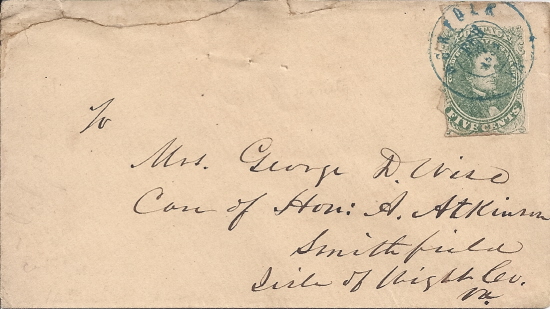 NORFOLK
FIVE CENTS
To
Mrs. George D. Wise
Care of Hon: A. Atkinson
Smithfield
Isle of Wight Co.
Va